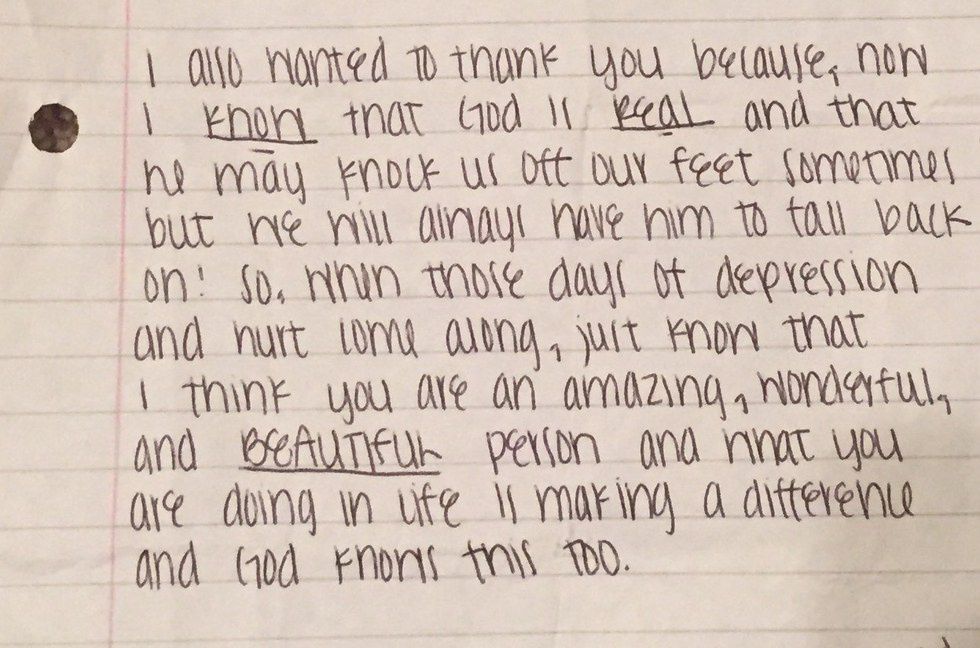 I also wanted to thank you because, now
I know that God is real and that
he may knock us off our feet sometimes
but we will always have him to fall back
on! So, when those days of depression
and hurt come along, just know that
I think you are an amazing, wonderful,
and BEAUTIFUL person and what you
are doing in life is making a difference
and God knows this too.